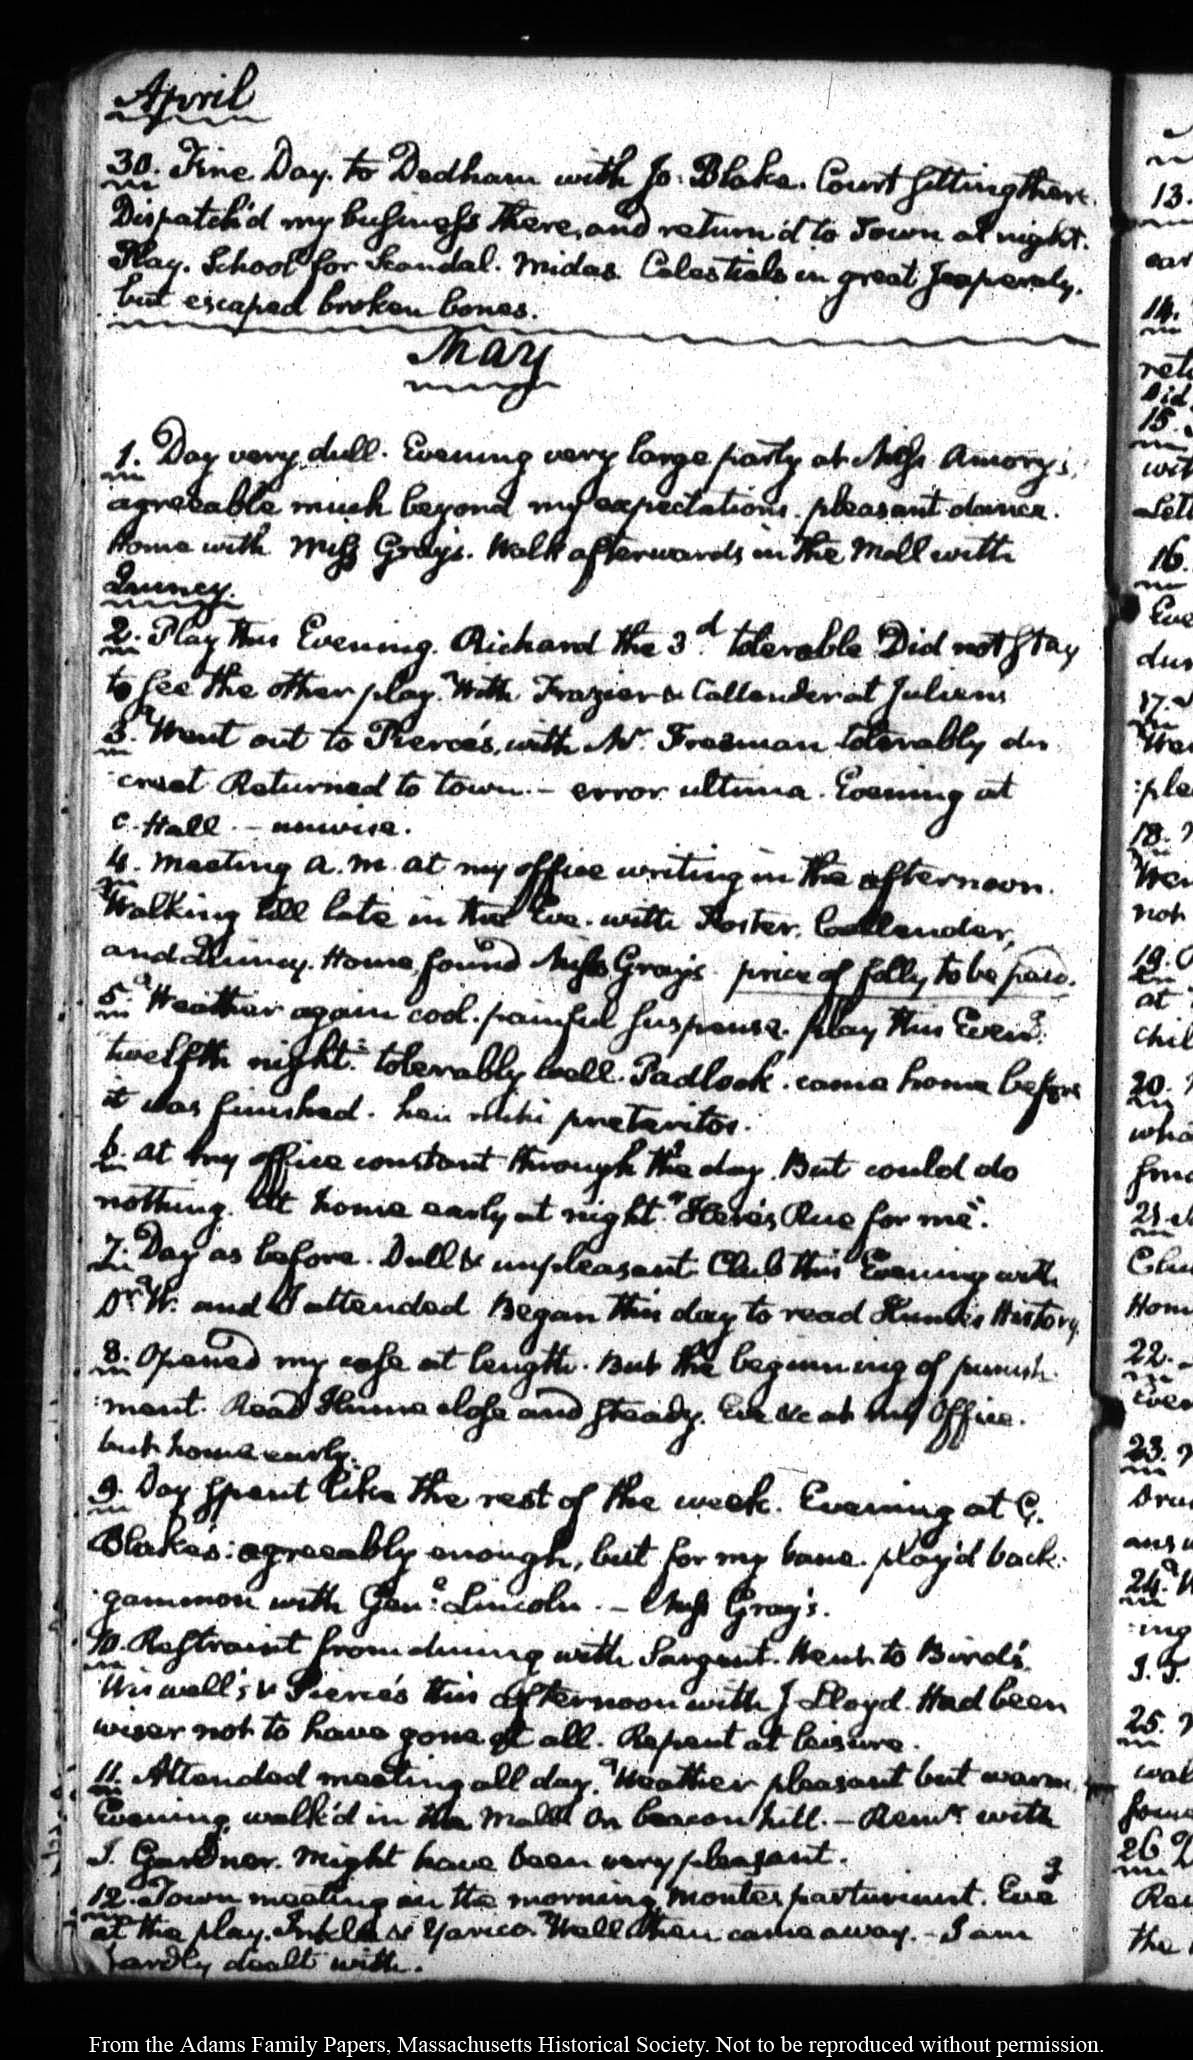 April
30. Fine Day. to Dedham with Jo: Blake. Court sitting there.
Dispatch'd my business there, and return'd to Town at night.
Play. School for Scandal. Midas. Celestials in great jeopardy.
but escaped broken bones.
May
1. Day very dull. Evening very large party at Mrs. Amory's,
agreeable much beyond my expectations. pleasant dance.
Home with Miss Gray's. Walk afterwards in the Mall with
Quincy.
2. Play this Evening. Richard the 3d. tolerable Did not stay
to see the other play. With Frazier & Callender at Juliens
3. Went out to Pierce's, with Mr. Freeman tolerably dis
:creet Returned to town. – error ultima. Evening at
C. Hall. – unwise.
4. Meeting A.M. at my office writing in the afternoon.
Walking till late in the Eve. with Foster, Callender,
and Quincy. Home, found Miss Gray's. price of folly to be paid.
5. Weather again cool. painful suspense. play this Eveng.
twelfth night. tolerably well. Padlock. came home before
it was finished. heu mihi preteritos.
6. At my office constant through the day. But could do
nothing. At home early at night. "Here's Rue for me".
7. Day as before. Dull & unpleasant Club this Evening with
Dr. W. and I attended Began this day to read Hume's History.
8. Opened my case at length. But the beginning of punish:
:ment. Read Hume close and steady. Eve &c at my Office.
but home early.
9. Day spent like the rest of the week. Evening at G.
Blake's: agreeably enough, but for my bane. play'd back:
:gammon with Genl. Lincoln. – Miss Gray's.
10. Restraint from dining with Sargent. Went to Bird's
Wiswall's & Pierce's this afternoon with J Lloyd. Had been
wiser not to have gone at all. Repent at leisure.
11. Attended meeting all day. Weather pleasant but warm.
Evening walk'd in the Mall On beacon hill. – with
J. Gardner. Might have been very pleasant.
12. Town meeting in the morning Montes parturiunt. Eveg
at the play. Inkle & Yarico. Well then came away. – I am
hardly dealt with.
13.
14.
15.
16.
17.
18.
19.
20.
21
22.
23.
24.
25.
26
From the Adams Family Papers, Massachusetts Historical Society. Not to be reproduced without permission.